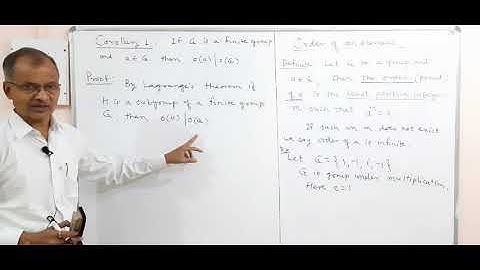 Corollary 1. If G is a finite group
and a ∈ G then o(a) | o(G)
Proof: By Lagrange's theorem if
H is a subgroup of a finite group
G then o(H) | o(G)
Order of an element
Definition Let G be a group and
a ∈ G. Then the order (period)
of a is the least positive integer
m such that
If such an m does not exist
we say order of a is infinite.
Ex. Let G = {1, -1, i, -i}
G is group under multiplication
Here e = 1